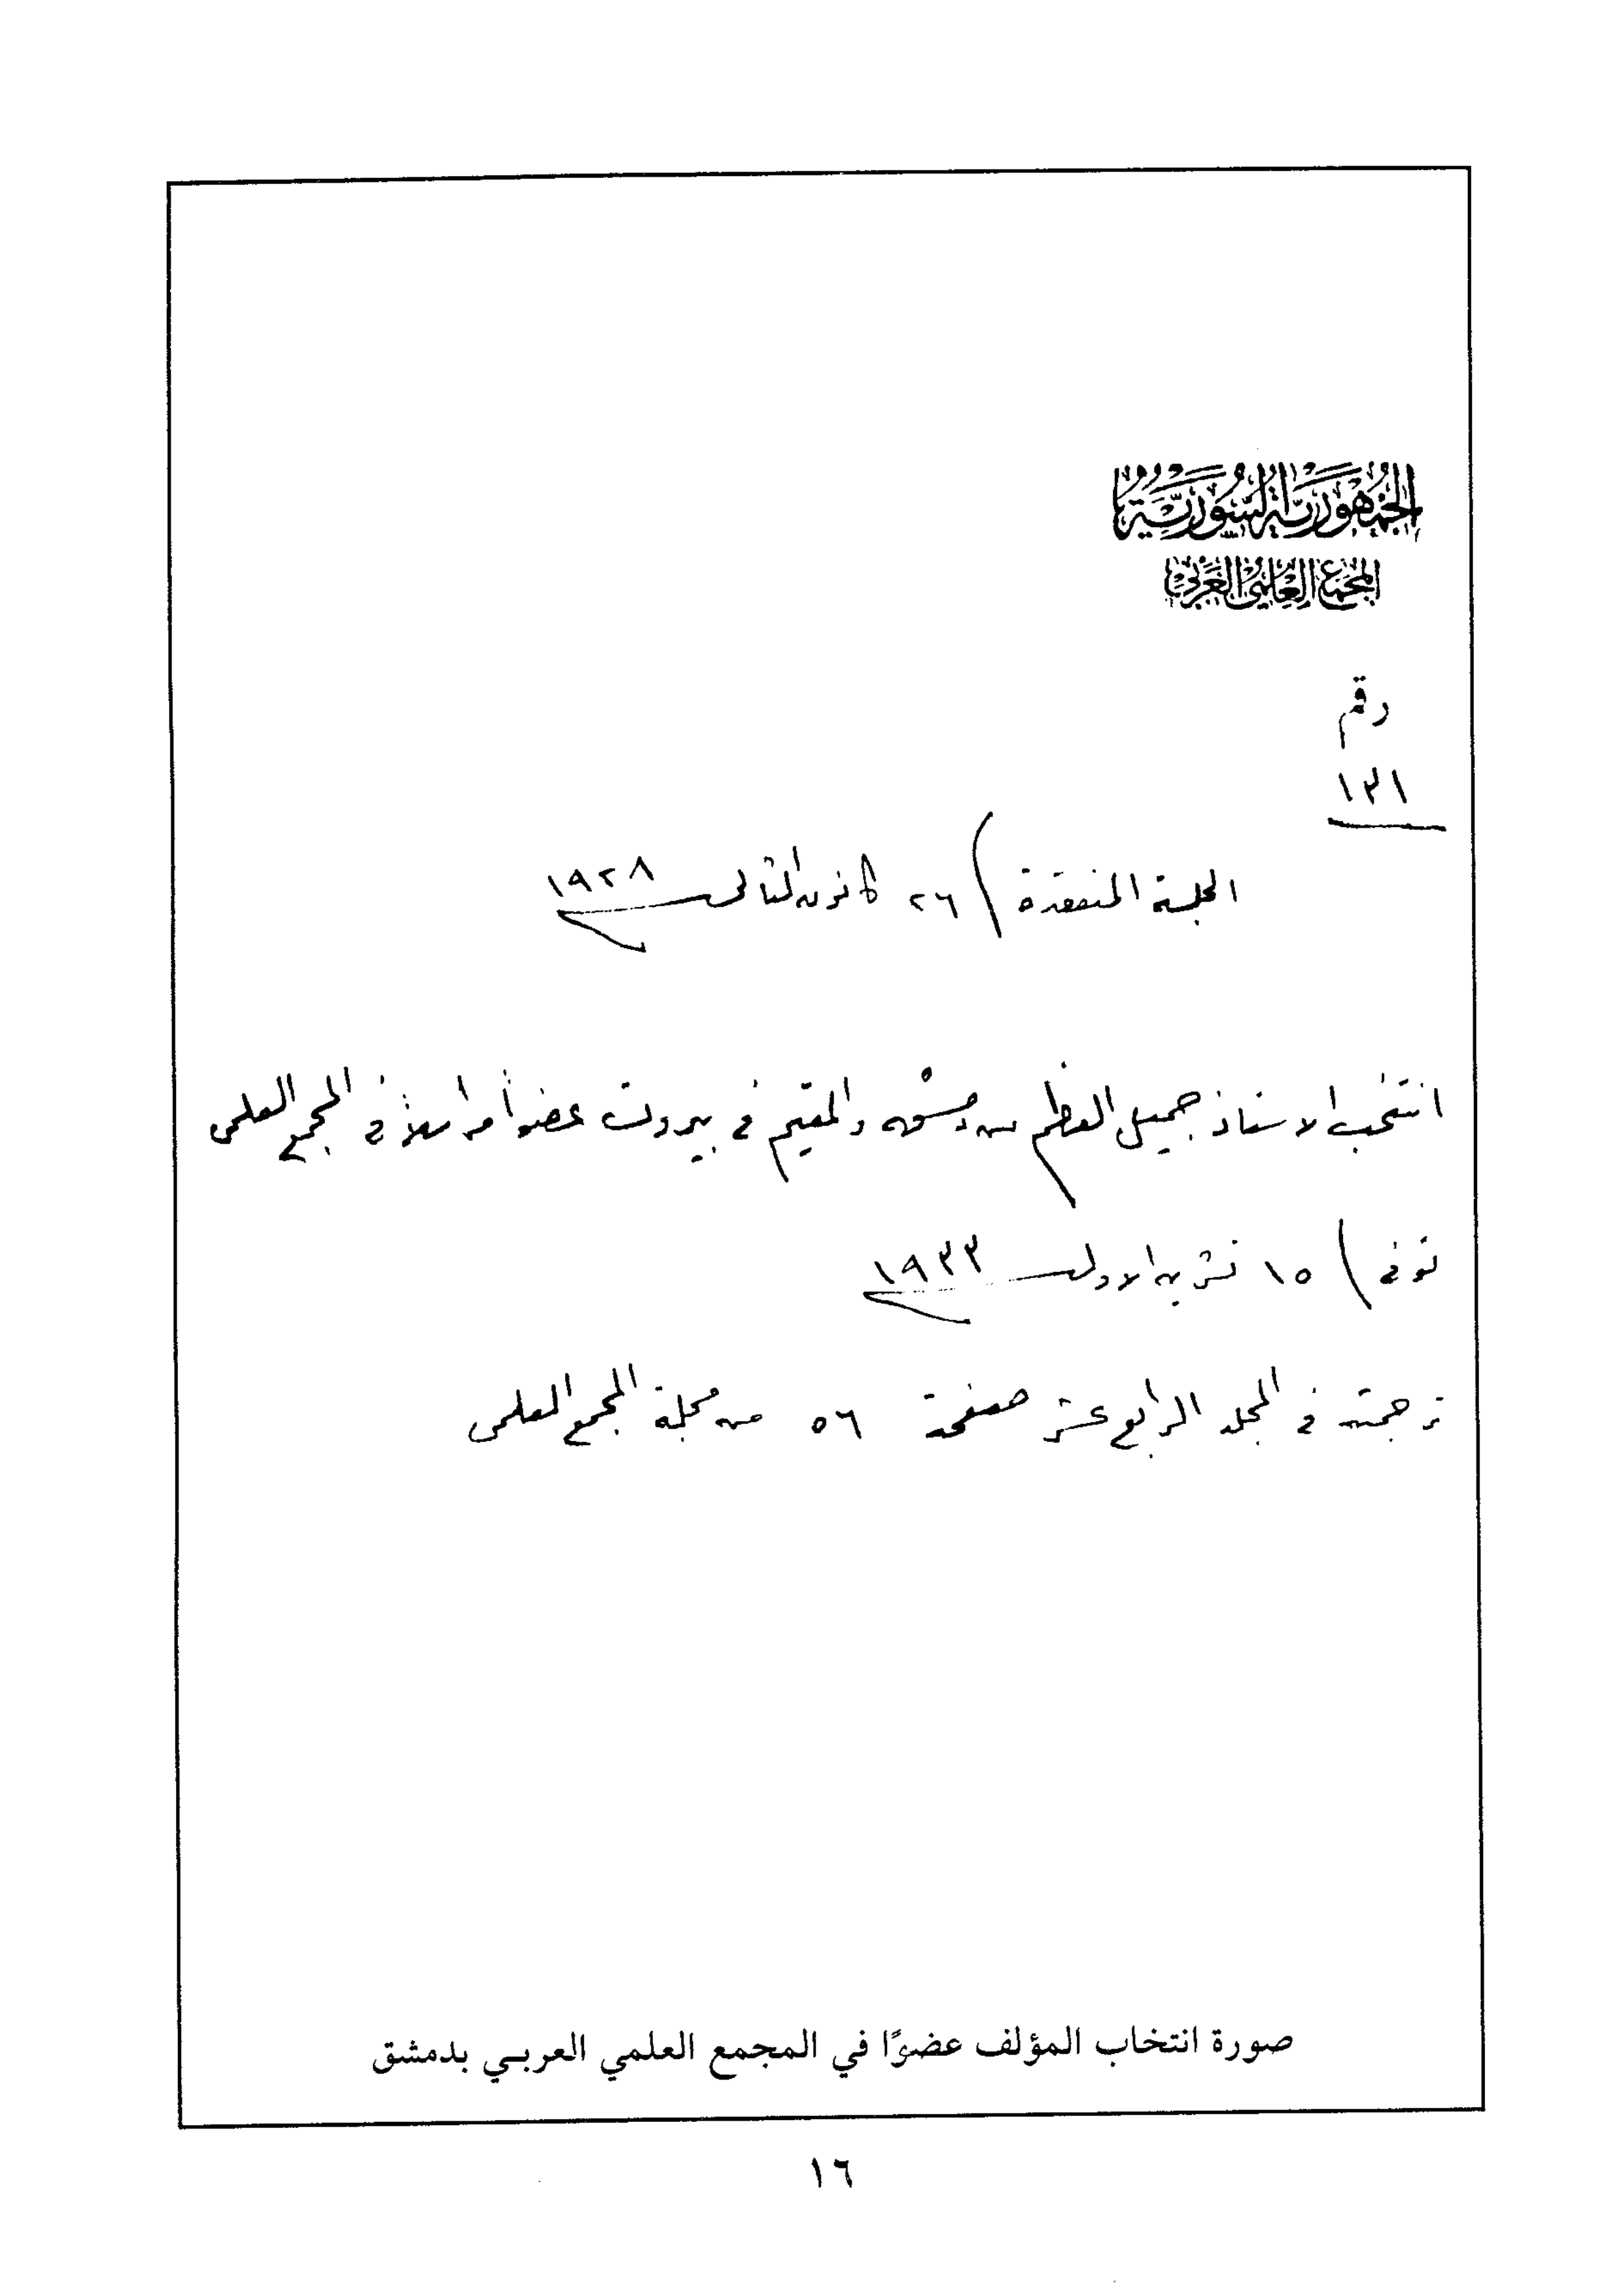 الجمهورية السورية
المجمع العلمي العربي
رقم
١٣١
الجلسة المنعقدة ) ٢٦ كانون الثاني ١٩٢٨
انتخب الاستاذ جميل العظم من دمشق والمقيم في بيروت عضواً مراسلاً في المجمع العلمي
توفي ) ١٥ تشرين الاول ١٩٣٣
ترجمته في المجلد الرابع عشر صفحة ٥٦ من مجلة المجمع العلمي
صورة انتخاب المؤلف عضوًا في المجمع العلمي العربي بدمشق
١٦